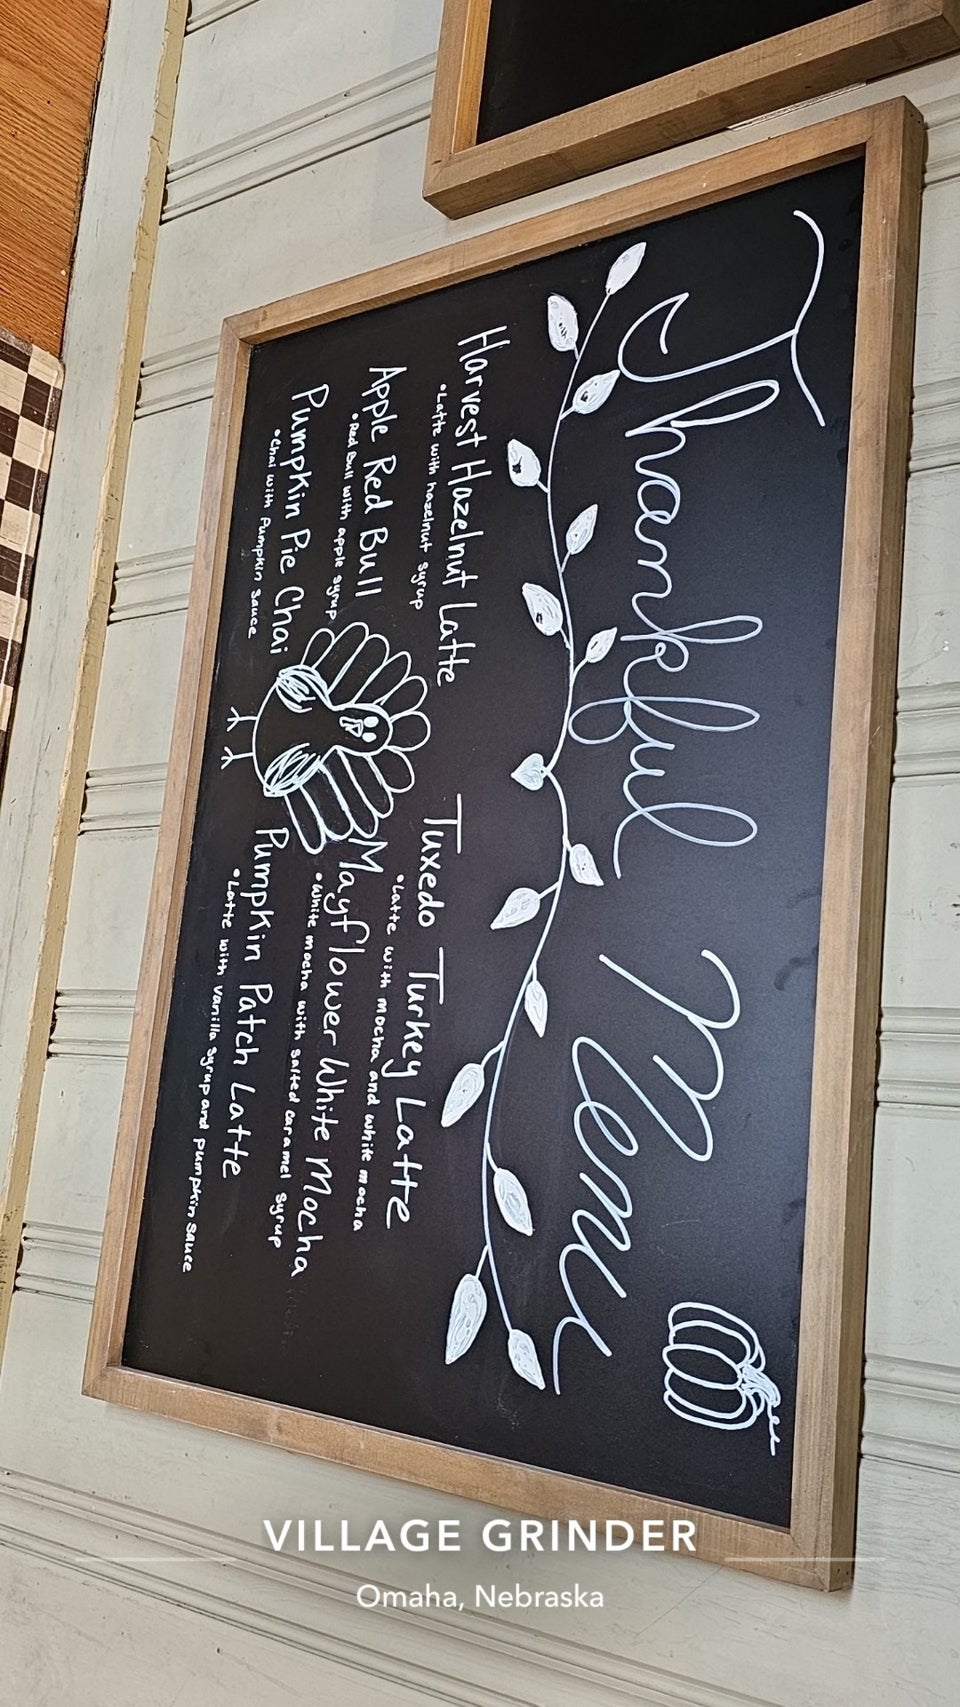 Thankful Menu
Harvest Hazelnut Latte
•Latte with hazelnut syrup
Apple Red Bull
•Red Bull with apple syrup
Pumpkin Pie Chai
•Chai with Pumpkin sauce
Tuxedo Turkey Latte
•Latte with mocha and white mocha
Mayflower White Mocha
•White mocha with salted caramel syrup
Pumpkin Patch Latte
•Latte with vanilla syrup and pumpkin sauce
VILLAGE GRINDER
Omaha, Nebraska